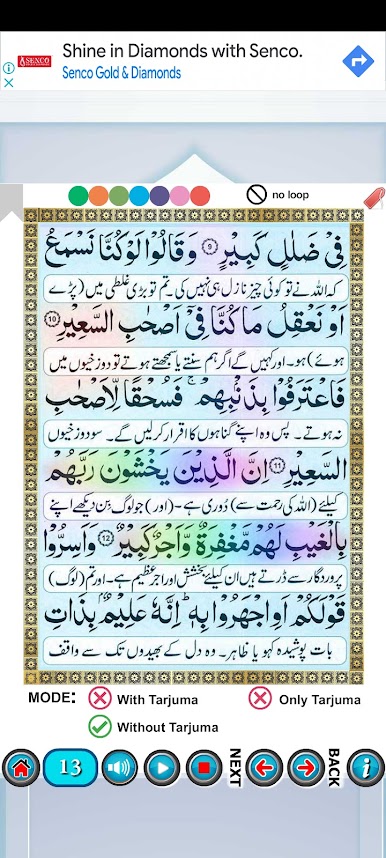 Shine in Diamonds with Senco.
SENCO
Senco Gold & Diamonds
no loop
فِيْ ضَلٰلٍ كَبِيْرٍ ۹ وَقَالُوْا لَوْ كُنَّا نَسْمَعُ
کہ اللہ نے تو کوئی چیز نازل ہی نہیں کی۔ تم تو بڑی غلطی میں (پڑے
اَوْ نَعْقِلُ مَا كُنَّا فِيْٓ اَصْحٰبِ السَّعِيْرِ 10
ہوئے) ہو۔ اور کہیں گے اگر ہم سنتے یا سمجھتے ہوتے تو دوزخیوں میں
فَاعْتَرَفُوْا بِذَنْۢبِهِمْ ۚ فَسُحْقًا لِّاَصْحٰبِ
نہ ہوتے۔ پس وہ اپنے گناہوں کا اقرار کرلیں گے۔ سو دوزخیوں
السَّعِيْرِ 11 اِنَّ الَّذِيْنَ يَخْشَوْنَ رَبَّهُمْ
کیلئے (اللہ کی رحمت سے) دُوری ہے۔ (اور) جو لوگ بِن دیکھے اپنے
بِالْغَيْبِ لَهُمْ مَّغْفِرَةٌ وَّاَجْرٌ كَبِيْرٌ 12 وَاَسِرُّوْا
پروردگار سے ڈرتے ہیں ان کیلئے بخشش اور اجر عظیم ہے۔ اور تم (لوگ)
قَوْلَكُمْ اَوِ اجْهَرُوْا بِهٖ ؕ اِنَّهٗ عَلِيْمٌۢ بِذَاتِ
بات پوشیدہ کہو یا ظاہر۔ وہ دل کے بھیدوں تک سے واقف
MODE: With Tarjuma Only Tarjuma
Without Tarjuma
13 NEXT BACK i